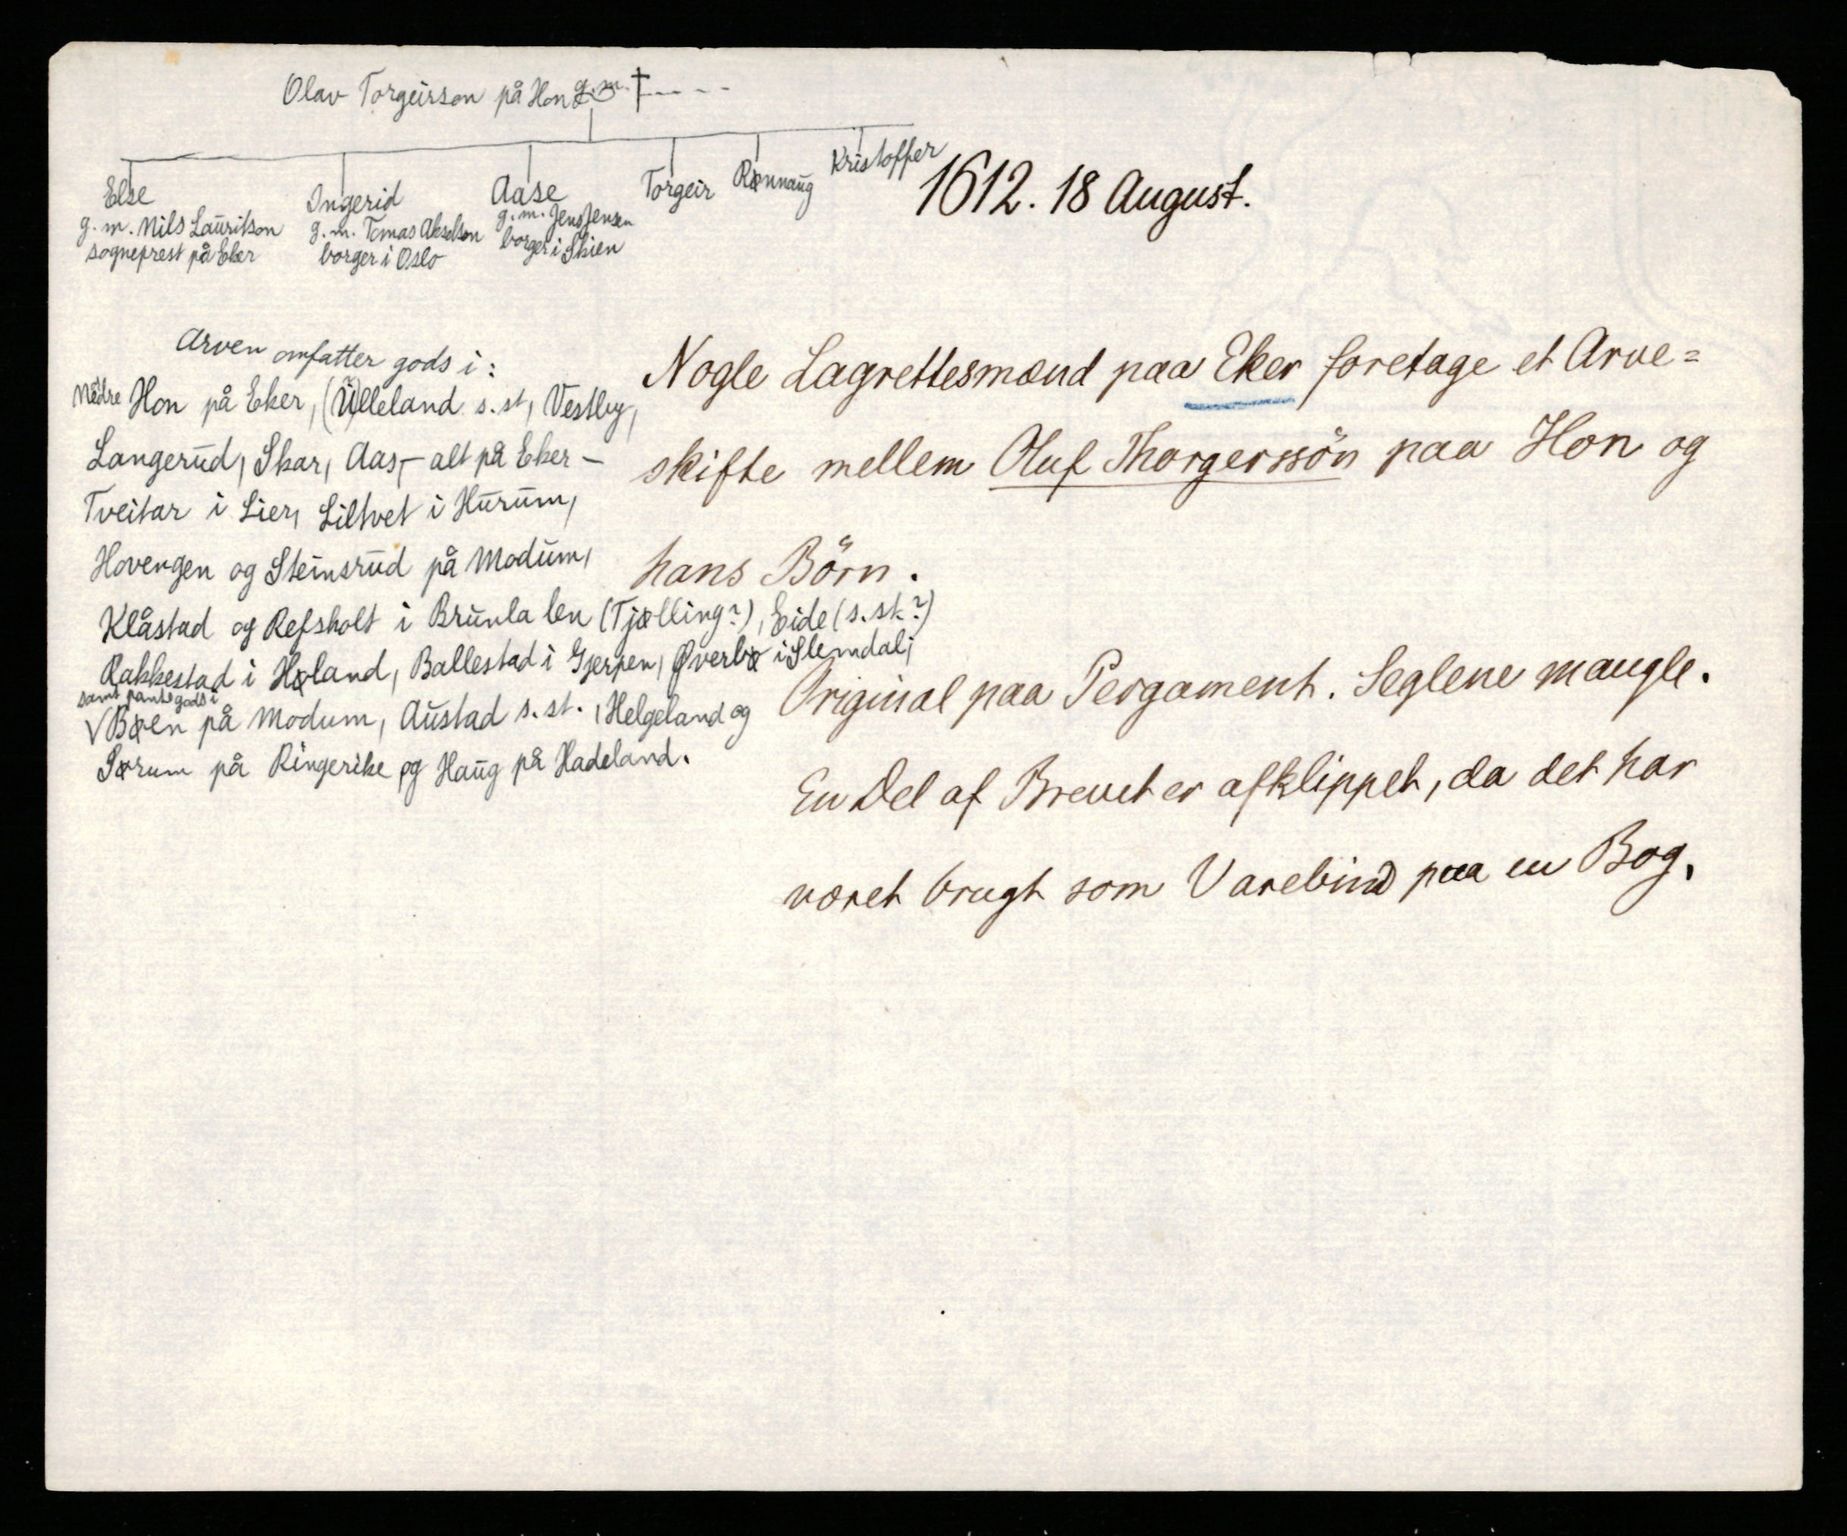 Olav Torgeirson på Hon g.m. † - - - -
Else
g. m. Nils Lauritson
sogneprest på Eker
Ingerid
g. m. Tomas Akselson
borger i Oslo
Aase
g. m. Jens Jensen
borger i Skien
Torgeir
Rønnaug
Kristoffer
1612. 18 August.
Arven omfatter gods i:
Nedre Hon på Eker, (Ulleland s. st, Vestby,
Langerud, Skar, Aas, – alt på Eker –
Tveitar i Lier, Liltvet i Hurum,
Hovengen og Steinsrud på Modum,
Klåstad og Refsholt i Brunla len (Tjølling?), Eide (s. st.?)
Rakkestad i Høland, Ballestad i Gjerpen, Øverbø i Slemdal;
samt pantegods i
√ Bøen på Modum, Austad s. st., Helgeland og
Sørum på Ringerike og Haug på Hadeland.
Nogle Lagrettesmænd paa Eker foretage et Arve=
skifte mellem Oluf Thorgerssön paa Hon og
hans Börn.
Original paa Pergament. Seglene mangle.
En Del af Brevet er afklippet, da det har
været brugt som Varebind paa en Bog.